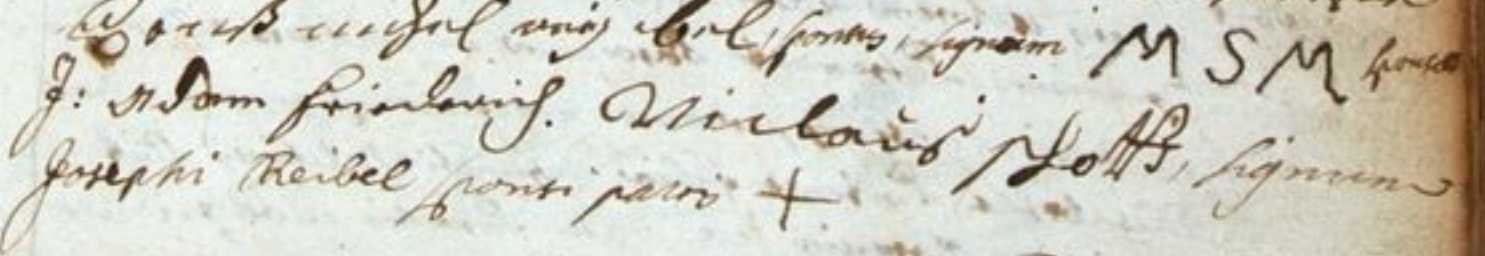 michel bel, sponsus, signum M S M sponsae
J: Adam friederich. Niclaus schott, signum
Josephi Reibel sponsi patris +